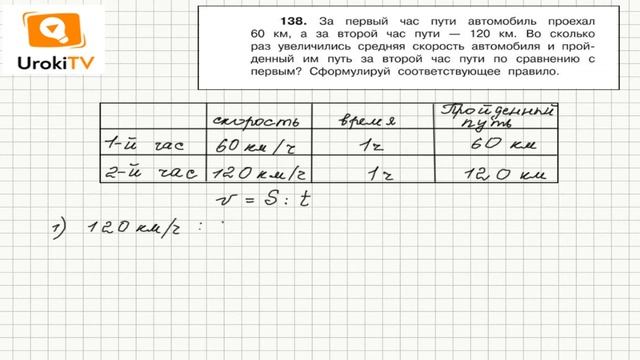 UrokiTV
138. За первый час пути автомобиль проехал
60 км, а за второй час пути — 120 км. Во сколько
раз увеличились средняя скорость автомобиля и прой-
денный им путь за второй час пути по сравнению с
первым? Сформулируй соответствующее правило.
скорость время Пройденный путь
1-й час 60 км/ч 1ч 60 км
2-й час 120 км/ч 1ч 120 км
v = S : t
1) 120 км/ч :